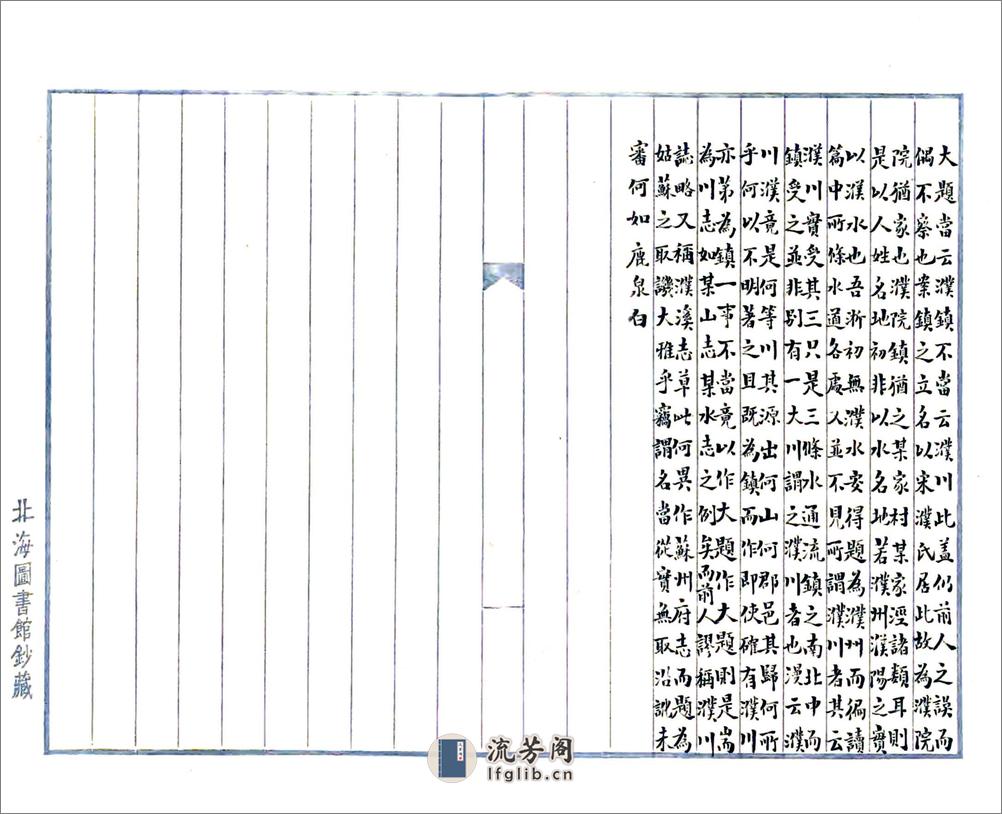 大題當云濮鎮不當云濮川此盖仍前人之誤而
偶不察也案鎮之立名以宋濮氏居此故為濮院
院猶家也濮院鎮猶之某家村某家涇諸類耳則
是以人姓名地初非以水名地若濮州濮陽之實
以濮水也吾浙初無濮水安得題為濮州而徧讀
篇中所條水道各處又並不見所謂濮川者其云
濮川實受其三只是三條水通流鎮之南北中而
鎮受之並非別有一大川謂之濮川者也漫云濮
川濮竟是何等川其源出何山何郡邑其歸何所
乎何以不明著之且既為鎮而作即使確有濮川
亦第為鎮一事不當竟以作大題作大題則是耑
為川志如某山志某水志之例矣而前人謬稱濮川
誌略又稱濮溪志草此何異作蘇州府志而題為
姑蘇之取譏大雅乎竊謂名當從實無取沿訛未
審何如鹿泉白
北海圖書館鈔藏
流芳阁
lfglib.cn